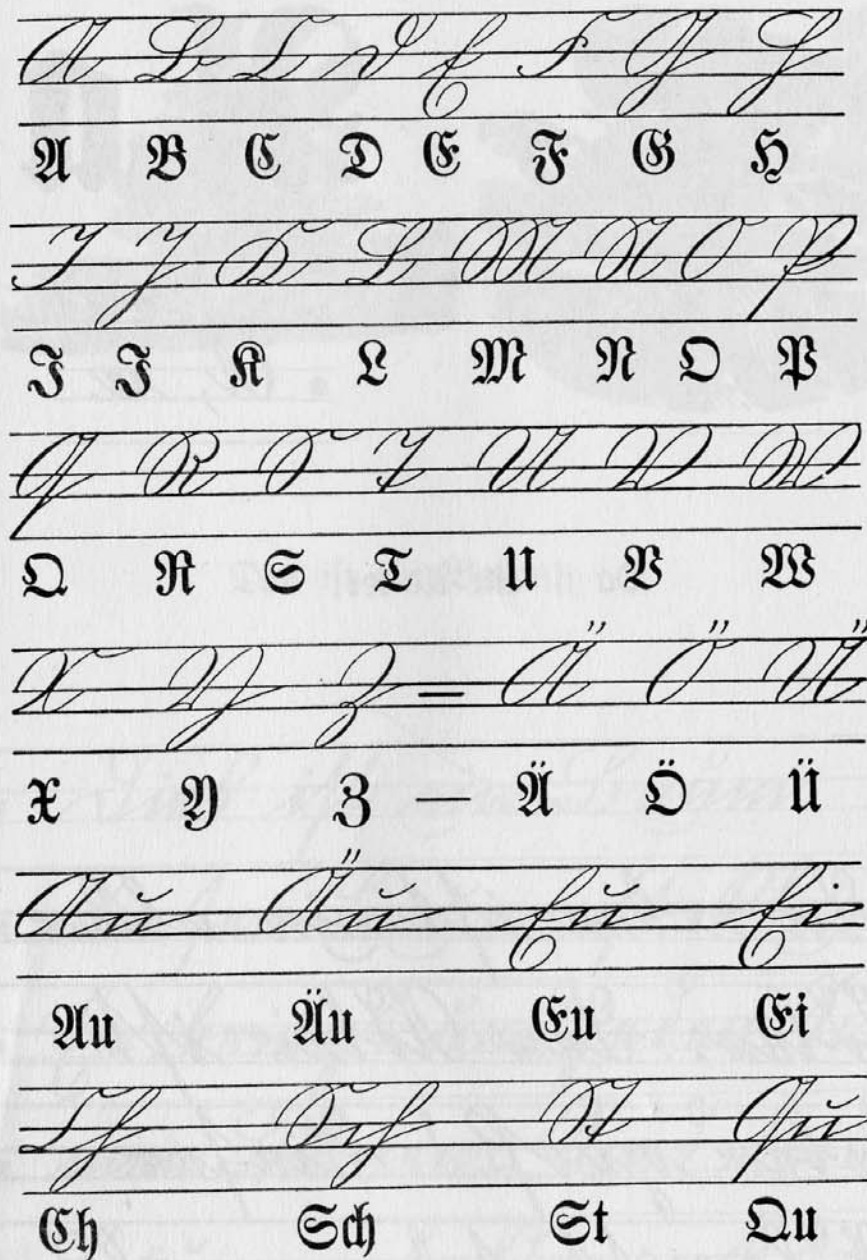 A B C D E F G H
A B C D E F G H
I J K L M N O P
I J K L M N O P
Q R S T U V W
Q R S T U V W
X Y Z = Ä Ö Ü
X Y Z — Ä Ö Ü
Au Äu Eu Ei
Au Äu Eu Ei
Ch Sch St Qu
Ch Sch St Qu